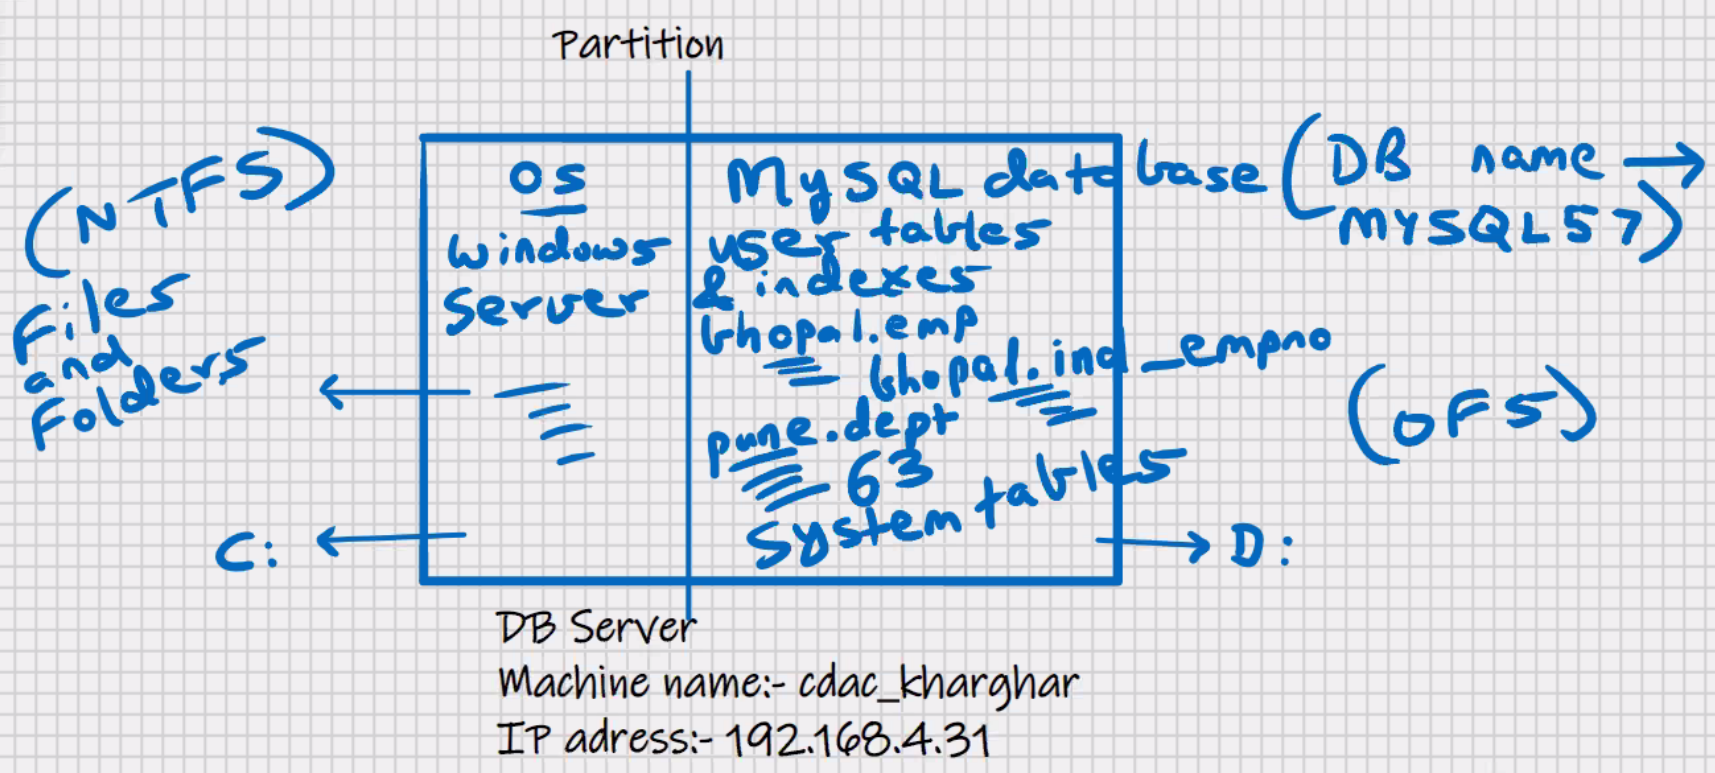 Partition
(NTFS)
Files
and
Folders
OS
Windows
Server
MySQL database (DB name →
MYSQL57)
user tables
& indexes
bhopal.emp
bhopal.ind_empno
pune.dept
63
System tables
(OFS)
C:
D:
DB Server
Machine name:- cdac_kharghar
IP adress:- 192.168.4.31